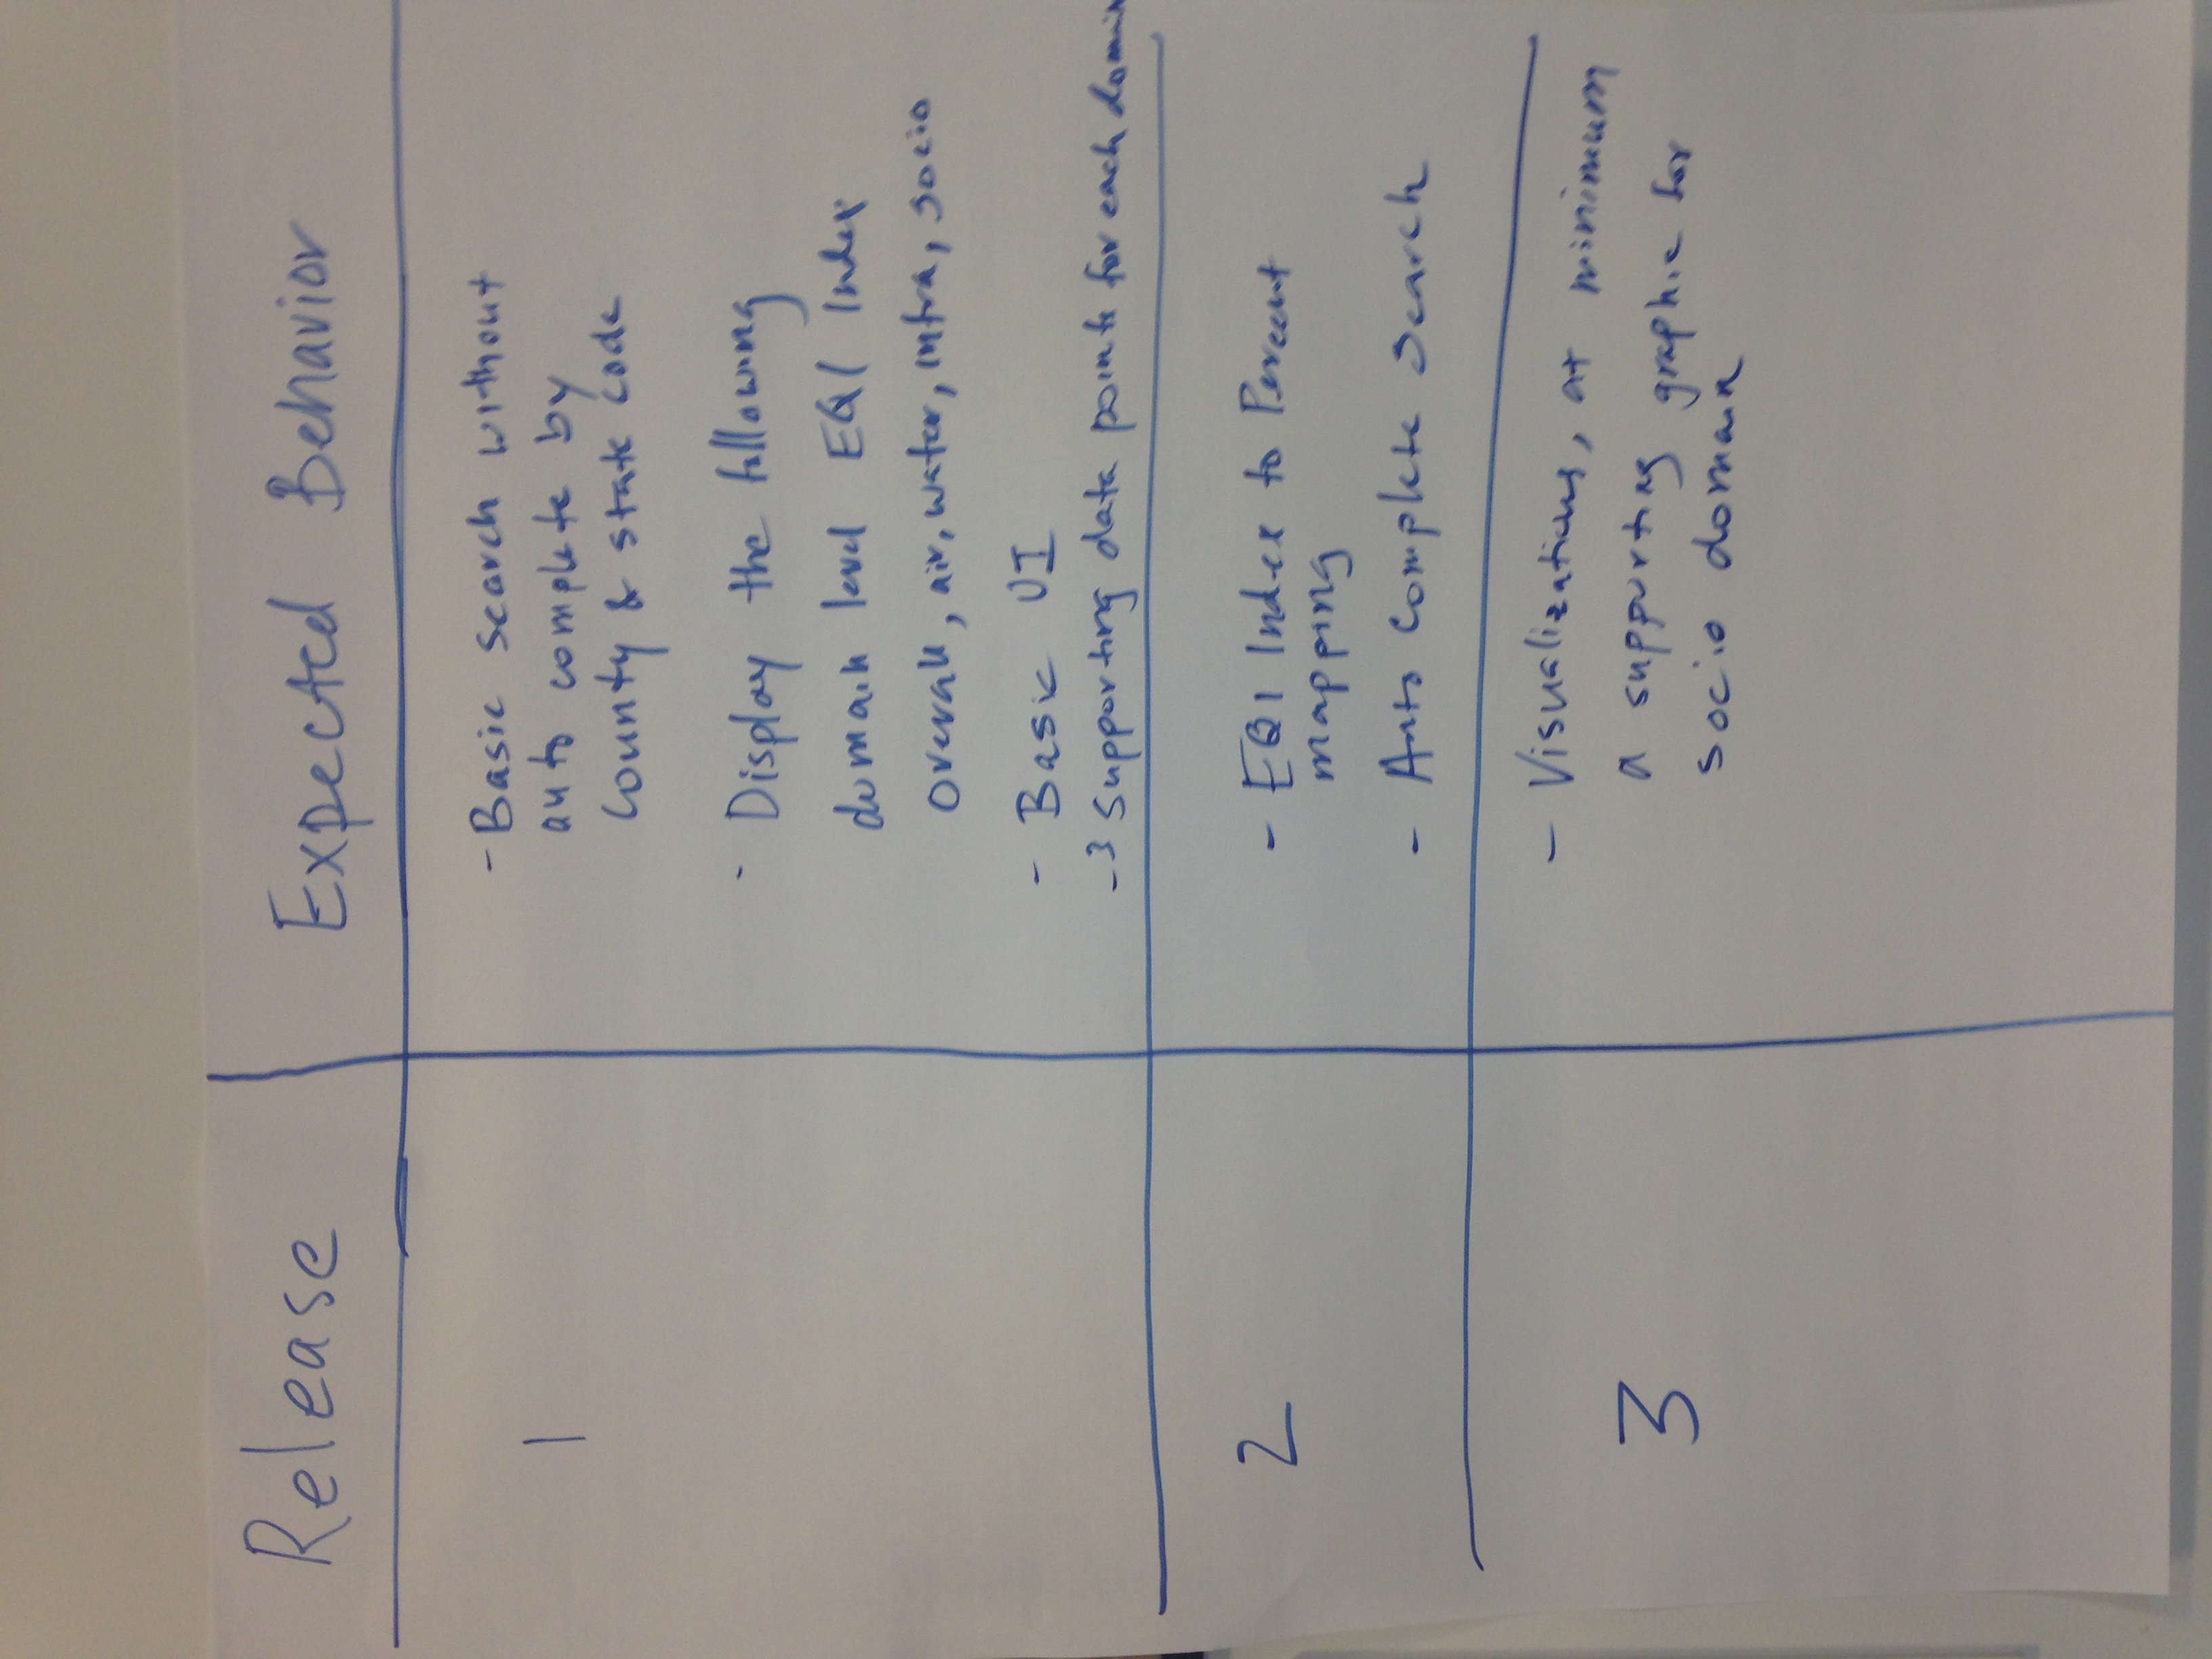 Release Expected Behavior
1
- Basic search without
auto complete by
county & state code
- Display the following
domain level EQI Index
overall, air, water, infra, socio
- Basic UI
- 3 supporting data points for each domain
2
- EQI Index to Percent
mapping
- Auto Complete Search
3
- Visualizations, at minimum
a supporting graphic for
socio domain